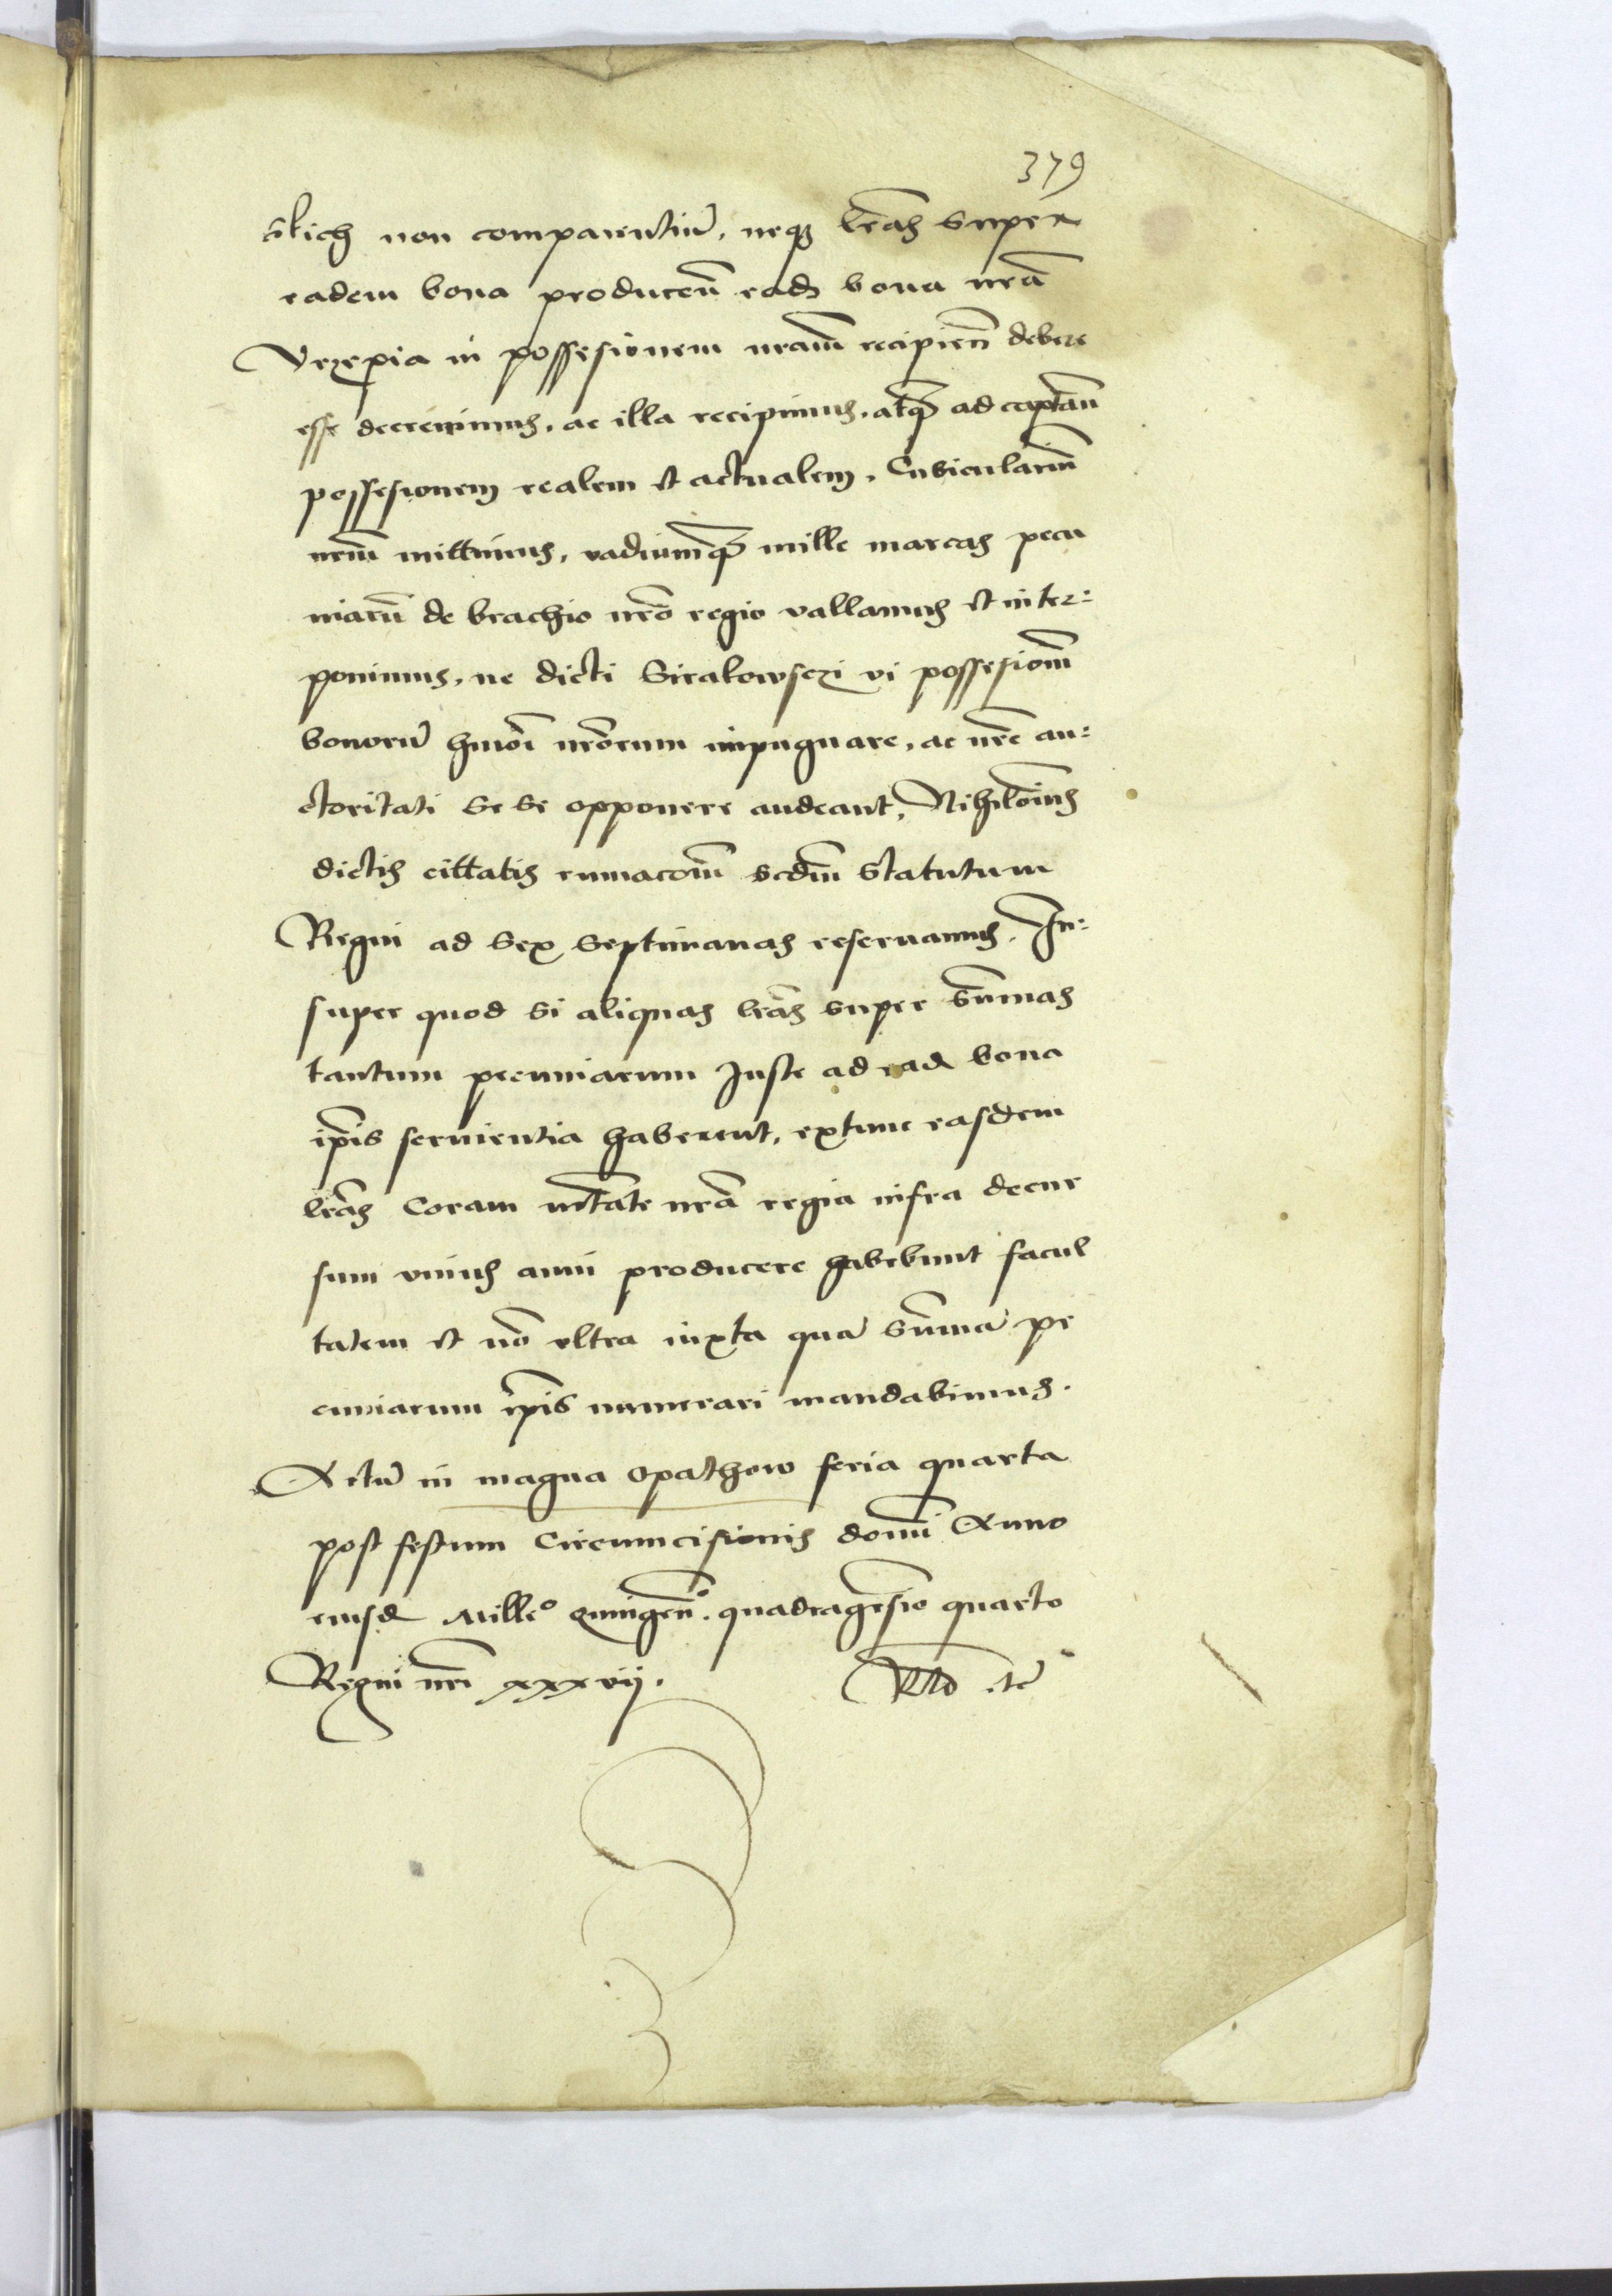 379
slich non comparentiu͂, neq₃ lr͂as super
eadem bona producen͂ ead₃ bona nr͂a
Vrzepia in possesionem nr͂am recipien͂ debere
esse decrevimus, ac illa recipimus, atq₃ ad captan͂
possesionem realem et actualem, Cubicularium͂
nr͂m mittimus, vadiumq₃ mille marcas pecu
niaru͂ de brachio nr͂o regio vallamus et inter=
ponimus, ne dicti Sirakowsczi vi possesionem͂
bonoru͂ hm͂oi nr͂orum impugnare, ac nr͂e au=
ctoritati se se opponere audeant, Nihilo͂minus
dictis cittatis eui͂acom͂ scd͂m statutum
Regni ad sex septimanas reservamus. In=
super quod si aliquas lr͂as super sum͂as
tantum pecuniarum juste ad ead₃ bona
ip͂is servientia haberent, extunc easdem
lr͂as coram mt͂ate nr͂a regia infra decur
sum unius anni producere habebunt facul
tatem et no͂ ultra iuxta qua͂ sum͂a͂ pe
cuniarum ip͂is numerari mandabimus.
Actu͂ in magna opathow feria quarta
post festum Circumcisionis domi͂ Anno
eiusd₃ Mille° quingen͂°. quadragesi͂o quarto
Regni nr͂i xxxvij. Rlo .te͂